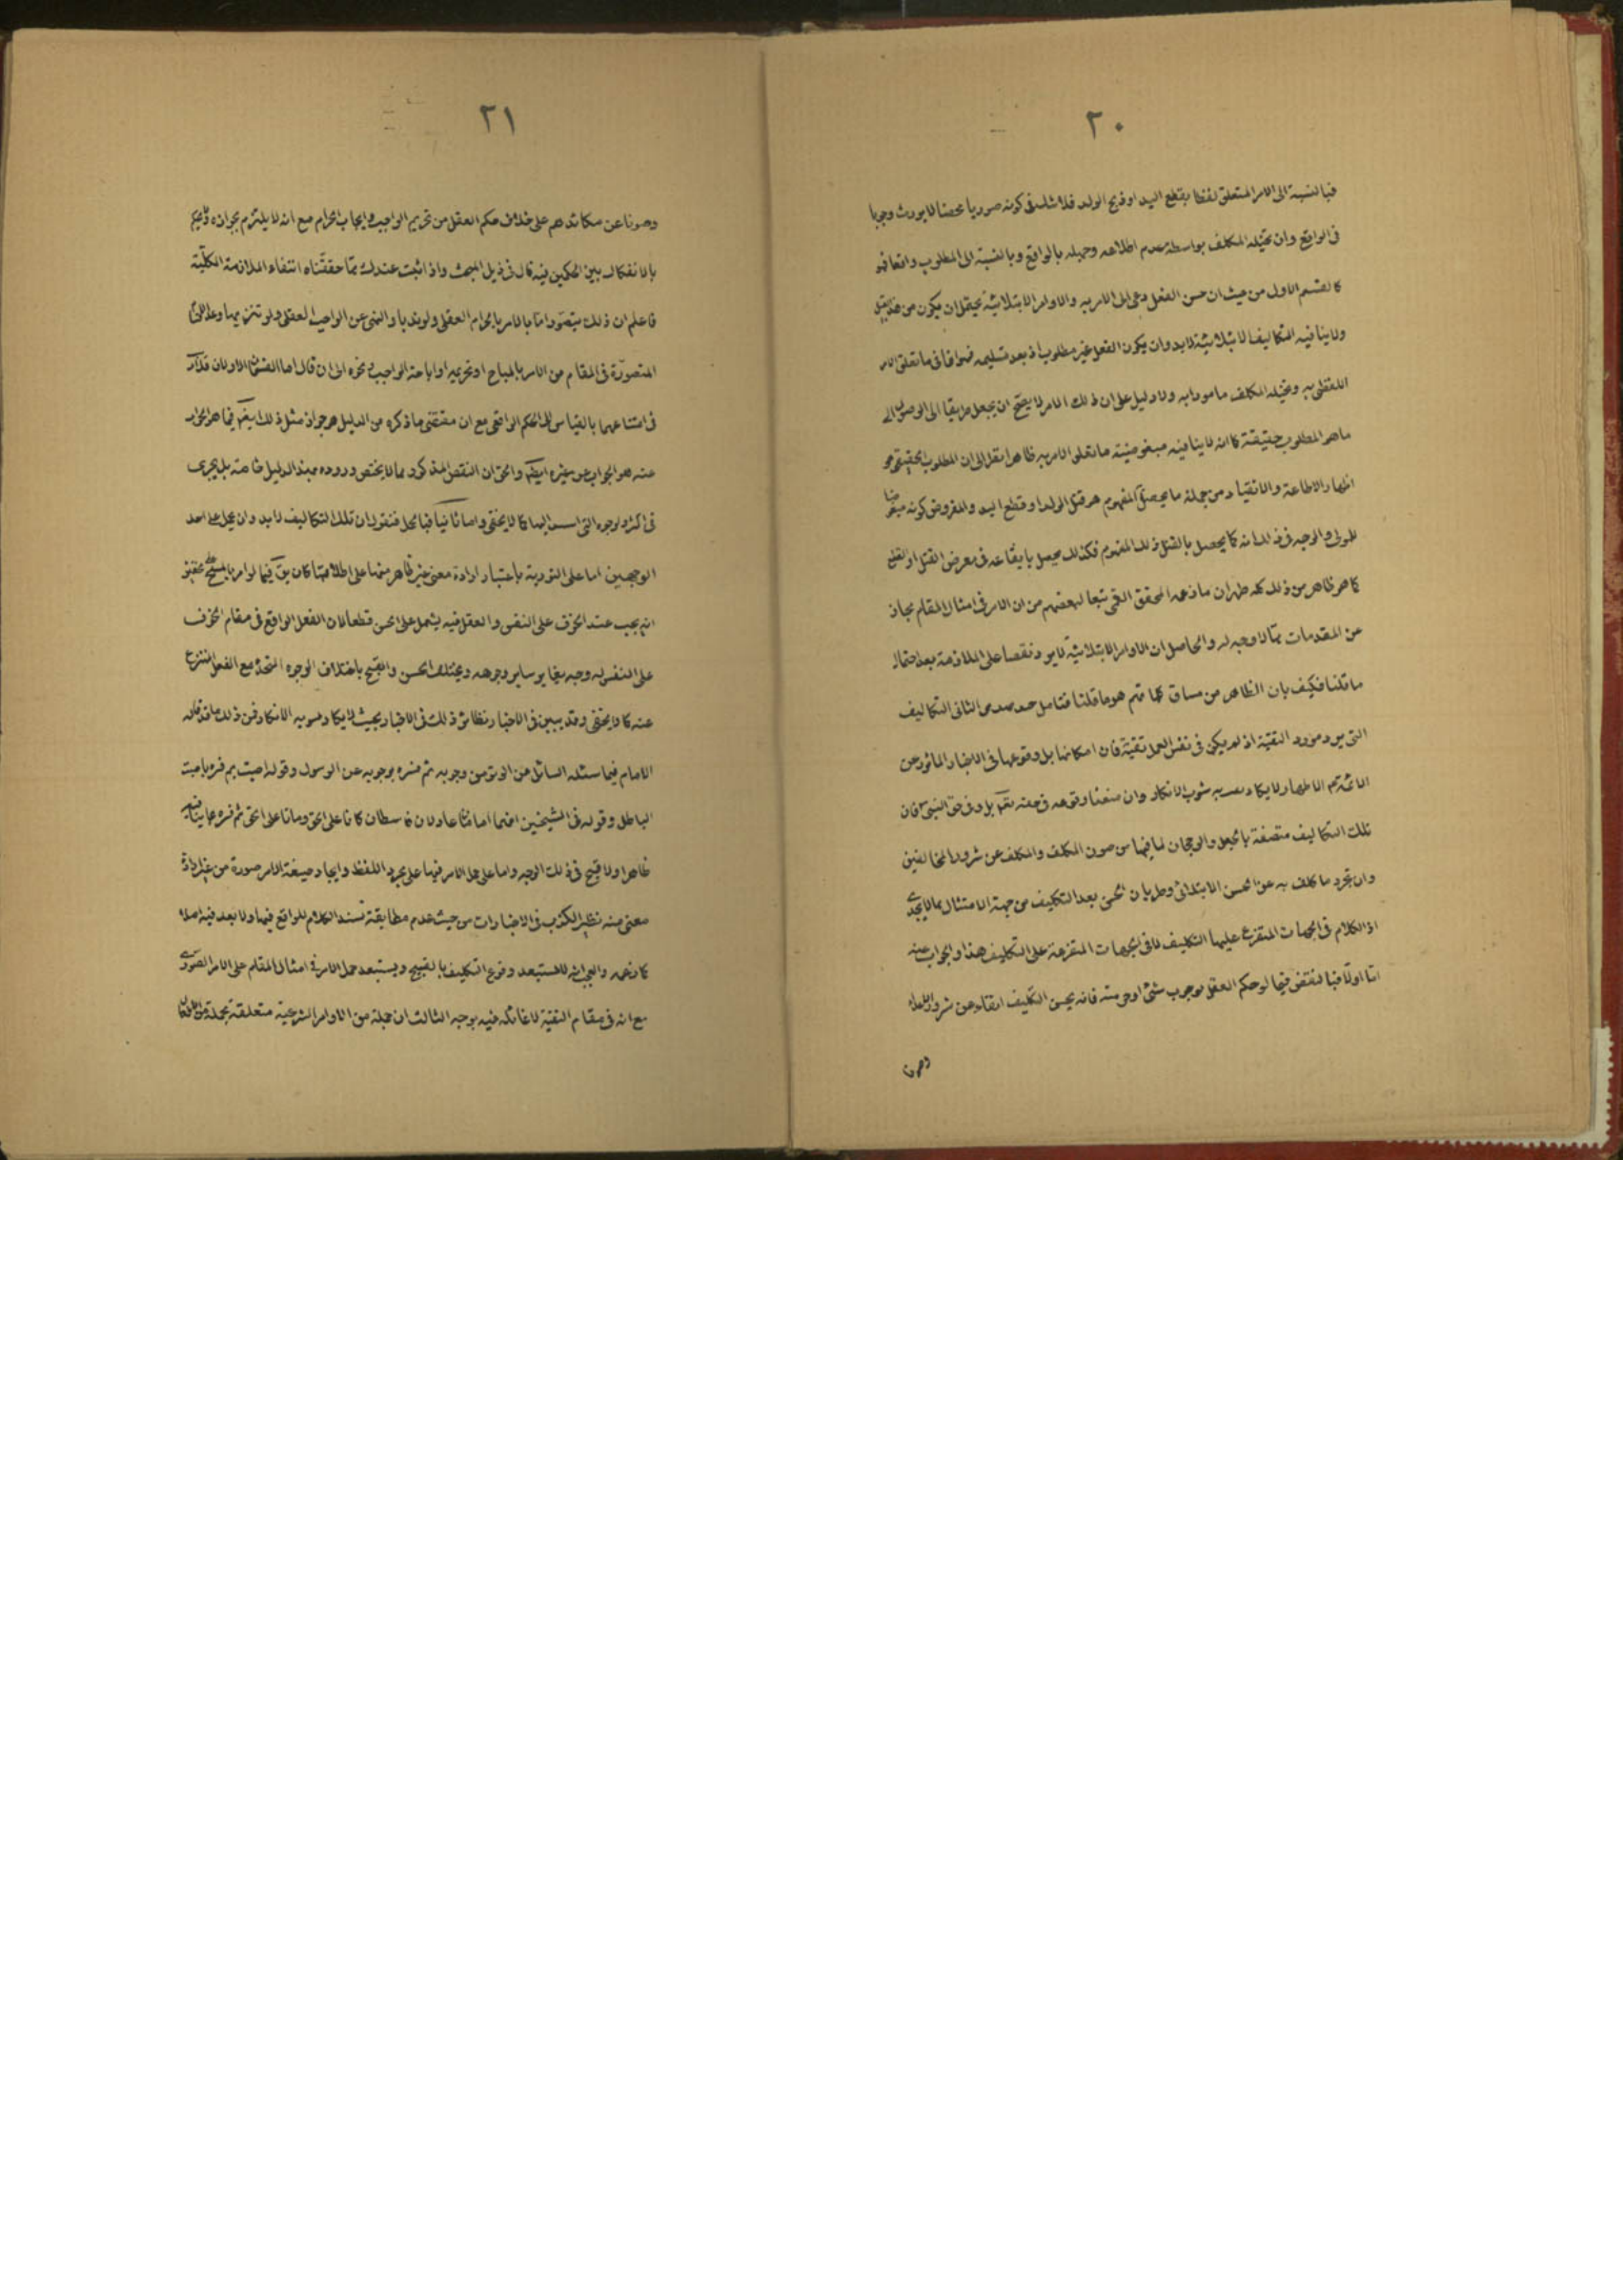 ٢٠
فبالنسبة الى الامر المتعلق لفظا بقطع اليد او ذبح الولد فلا شك فى كونه صوريا محضا لا يورث وجوبا
فى الواقع وان تخيّله المكلف بواسطة عدم اطلاعه وجهله بالواقع وبالنسبة الى المطلوب واقعا فهو
كالقسم الاول من حيث ان حسن الفعل دعى الى الامر به والاوامر الابتلائية يحتمل ان يكون من هذا القبيل
ولا ينافيه التكاليف الابتلائية لابد وان يكون الفعل غير مطلوب اذ بعد تسليمه فهو اما فى ما تعلق الامر
اللفظى به وتخيله المكلف مامورا به ولا دليل على ان ذلك الامر لا يصح ان يجعل طريقا الى الوصول الى
ما هو المطلوب حقيقة كما انه لا ينافيه مبغوضيته ما تعلق الامر به ظاهرا نظرا الى ان المطلوب الحقيقى هو
اظهار الاطاعة والانقياد ومن جملة ما يحصل المفهوم هو قتل الولد او قطع اليد والمفروض كونه مبغوضا
للمولى والوجه فى ذلك انه كما يحصل بالقتل ذلك المفهوم فكذلك يحصل بايقاعه فى معرض القتل او القطع
كما هو ظاهر ومن ذلك كله ظهر ان ما زعمه المحقق القمى تبعا لبعضهم من ان الامر فى امثال المقام مجاز
عن المقدمات ممّا لا وجه له والحاصل ان الاوامر الابتلائية لا يورد نقضا على الملازمة بعد احتمال
ما قلنا فكيف بان الظاهر من مساق كلماتهم هو ما قلنا فتامل الثانى التكاليف
التى يرد مورد التقية اذ لم يكن فى نفس العمل تقية فان امكانها بل وقوعها فى الاخبار الماثورة عن
الائمة الاطهار لا يكاد يعتريه شوب الانكار وان منعنا وقوعه فى حقه تعم بل وفى حق النبى ص فان
تلك التكاليف متصفة بالجعل والرجحان لما فيها من صون المكلف والمكلف عن شرور المخالفين
وان تجرد ما كلف به عن الحسن الابتدائى وطريان الحسن بعد التكليف من جهة الامتثال مما لا يجدى
اذ الكلام فى الجهات المتفرع عليها التكليف لا فى الجهات المتفرعة على التكليف هذا والجواب عنه
امّا اولا فبالنقض فيما لو حكم العقل بوجوب شئ او حرمته فانه يحسن التكليف اتقاء عن شرور الاعداء
وصونا
٢١
وصونا عن مكائدهم على خلاف حكم العقل من تحريم الواجب وايجاب الحرام مع انه لا يلتزم بجوازه ولا يحكم
بالانفكاك بين الحكمين فيه قال فى ذيل المبحث واذا ثبت عندك ممّا حققناه انتفاء الملازمة الكلّية
فاعلم ان ذلك يتصوّر امّا بالامر بالحرام العقلى ولو ندبا او النهى عن الواجب العقلى ولو تنزيها وعد الاقسام
المتصوّرة فى المقام من الامر بالمباح او تحريمه او اباحة الواجب ونحوه الى ان قال اما القسمان الاولان فلا كلام
فى امتناعهما بالقياس الى الحكم الواقعى مع ان مقتضى ما ذكره من الدليل هو جواز مثل ذلك ايضا فما هو الجواب
عنه هو الجواب عن غيره ايضا والحق ان النقض المذكور مما لا يختص وروده بهذا الدليل خاصة بل يجرى
فى اكثر الوجوه التى استند اليها كما لا يخفى واما ثانيا فبالحل فنقول ان تلك التكاليف لابد وان يحمل على احد
الوجهين اما على التورية باعتبار ارادة معنى غير ظاهر منها على اطلاقها كان يق فيما لو امر بالمسح على الخفين
انه يجب عند الخوف على النفس والعقل فيه يشمل على الحسن قطعا لان الفعل الواقع فى مقام الخوف
على النفس له وجه يغاير ساير وجوهه ويختلف الحسن والقبح باختلاف الوجوه المتحدة مع الفعل المنتزع
عنه كما لا يخفى وقد يبين فى الاخبار نظائر ذلك فى الاخبار بحيث لا يكاد يسوغه الانكار فمن ذلك ما قد قاله
الامام فيما سئله السائل عن الوتر من وجوبه ثم فسره بوجوبه عن الرسول وقوله احييت ثم فسره باميت
الباطل وقوله فى الشيخين انهما امامان عادلان قاسطان كانا على الحق وماتا على الحق ثم فسره بما ينافيه
ظاهرا ولا قبح فى ذلك الوجه واما على حمل الامر فيها على مجرد اللفظ وايجاد صيغة الامر صورة من غير ارادة
معنى منه نظير الكذب فى الاخبارات من حيث عدم مطابقة نسبة الكلام للواقع فيها ولا بعد فيه اصلا
كما زعمه والعجب انه لا يستبعد وقوع التكليف بالقبيح ويستبعد حمل الامر فى امثال المقام على الامر الصورى
مع انه فى مقام التقية لا غائلة فيه بوجه الثالث ان جملة من الاوامر الشرعية متعلقة بجملة من الافعال